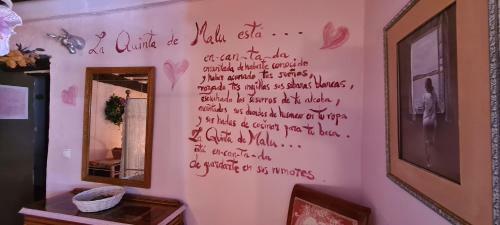 La Quinta de Malu está ....
en-can-ta-da
encantada de haberte conocido
y haber acunado tus sueños,
rozado tus mejillas sus sábanas blancas,
escuchado los tesoros de tu alcoba,
sus duendes de husmear en tu ropa
y sus hadas de cocinar para tu boca.
La Quinta de Malu....
está en-can-ta-da
de guardarte en sus rumores.